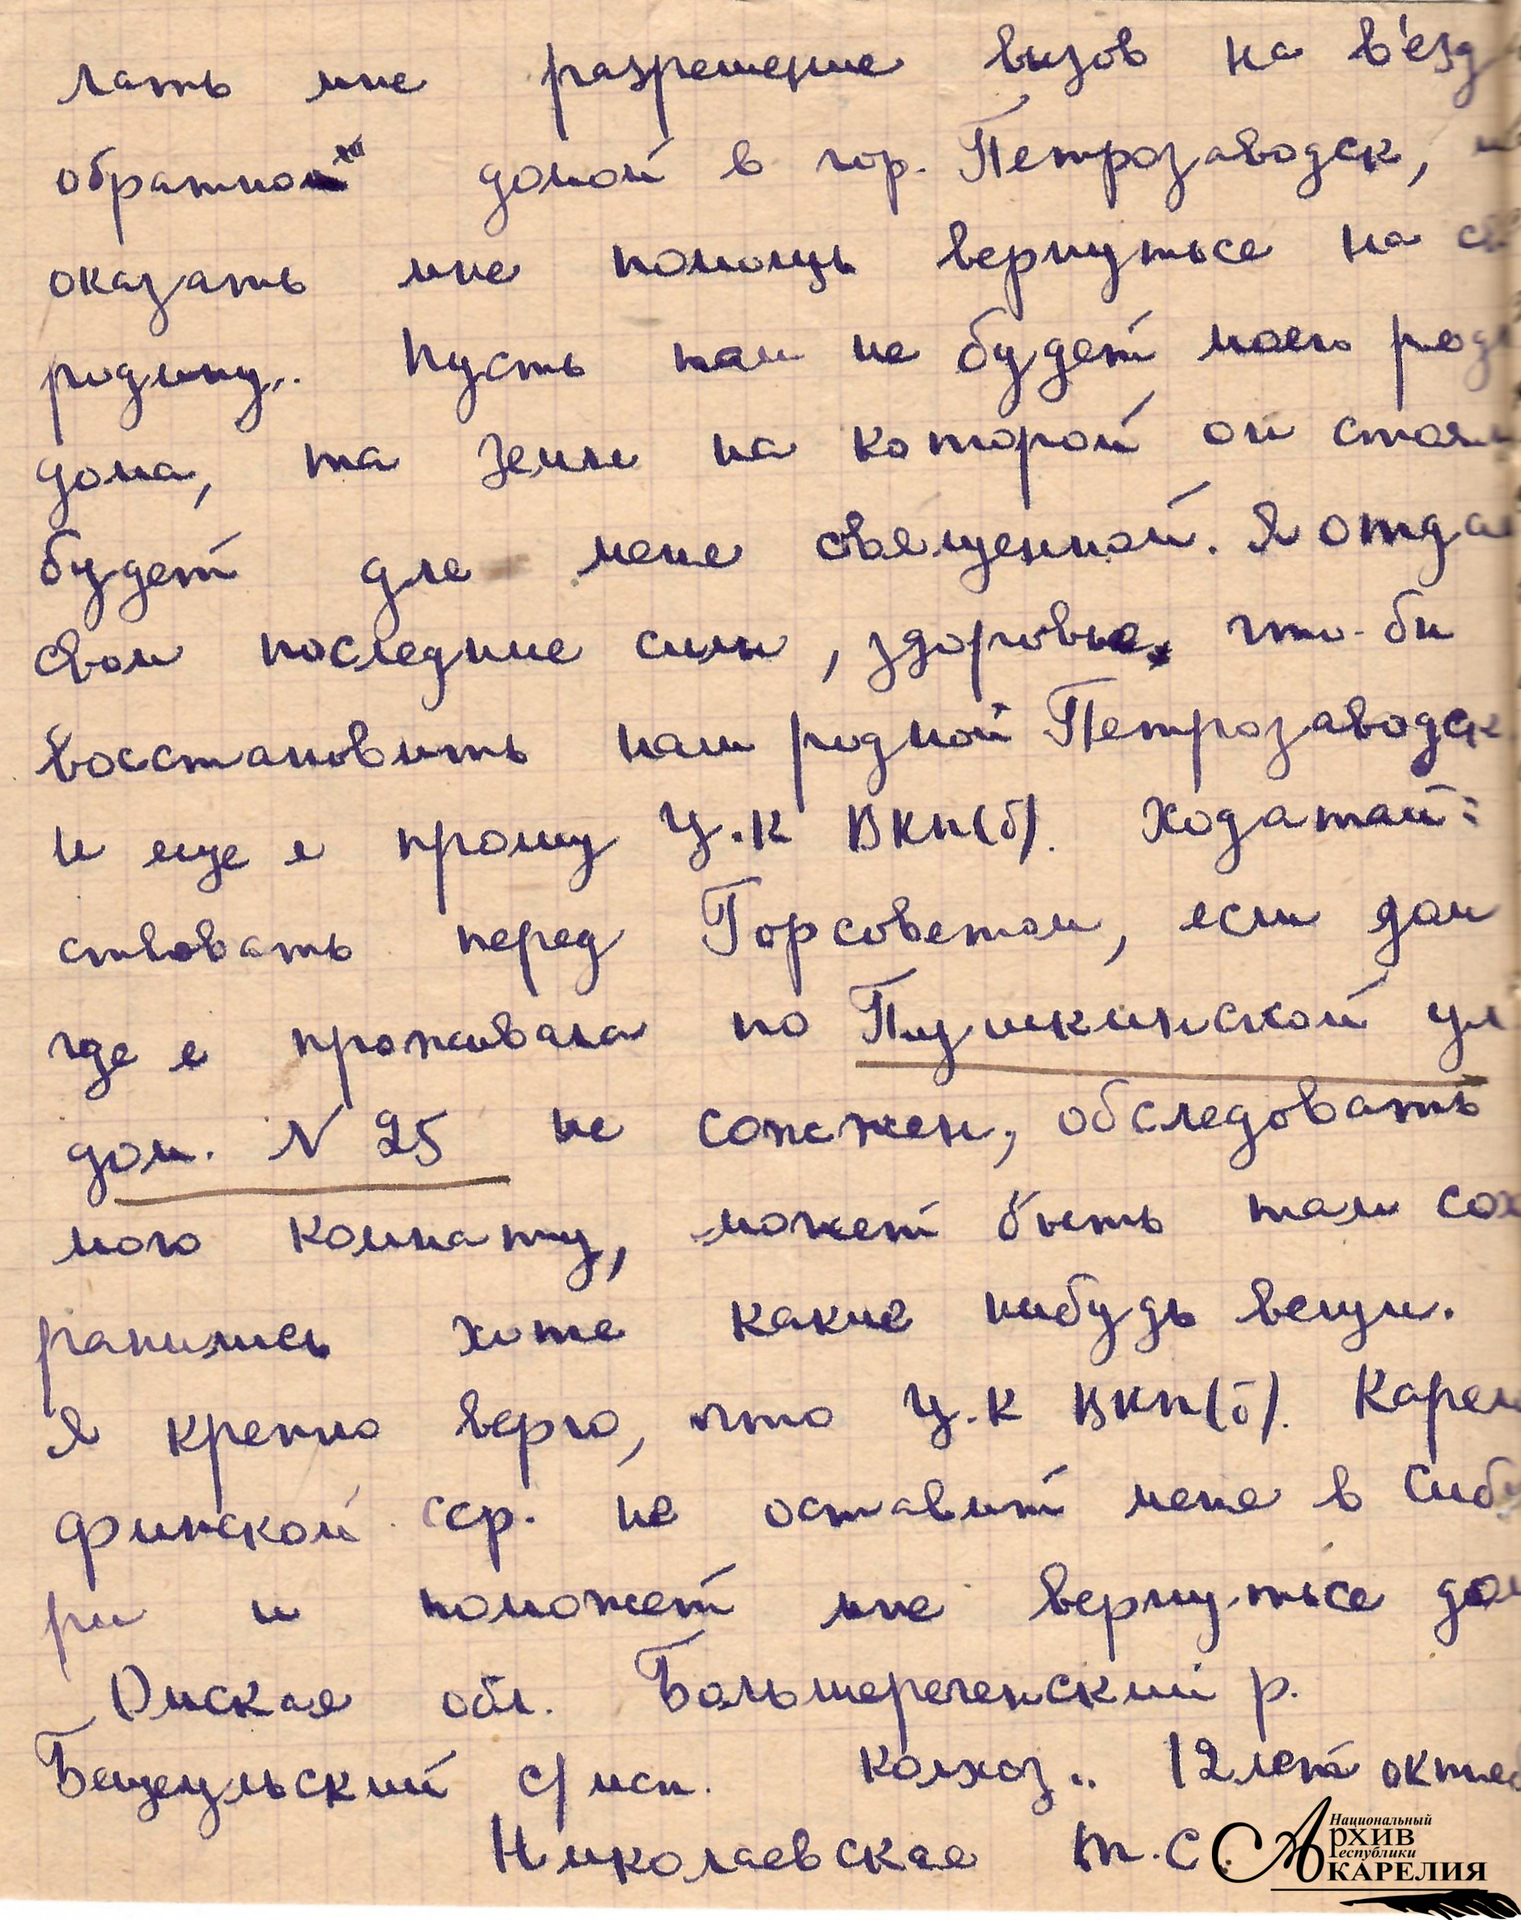 лать мне разрешение вызов на в'езд
обратно домой в гор. Петрозаводск,
оказать мне помощь вернутьсе на
родину. Пусть там не будет моего
дома, та земле на которой он стоял
будет дле мене свещенной. Я отдам
свои последние силы, здоровье, что-бы
восстановить наш родной Петрозаводск
И еще е прошу Ц.К ВКП(б). Ходатай=
ствовать перед Горсоветом, если дом
где е проживала по Пушкинской ул
дом. N 25 не сожжен, обследовать
мою комнату, может быть там сох
ранились хоте какие нибудь вещи.
Я крепко верю, что Ц.К ВКП(б). Карело
финской сср. не оставит мене в Сиби
ри и поможет мне вернутьсе дом
Омская обл. Большереченский р.
Бещеульский с/исп. колхоз.. 12 лет октяб
Николаевская Т.С.
Национальный
Архив
Республики
Карелия